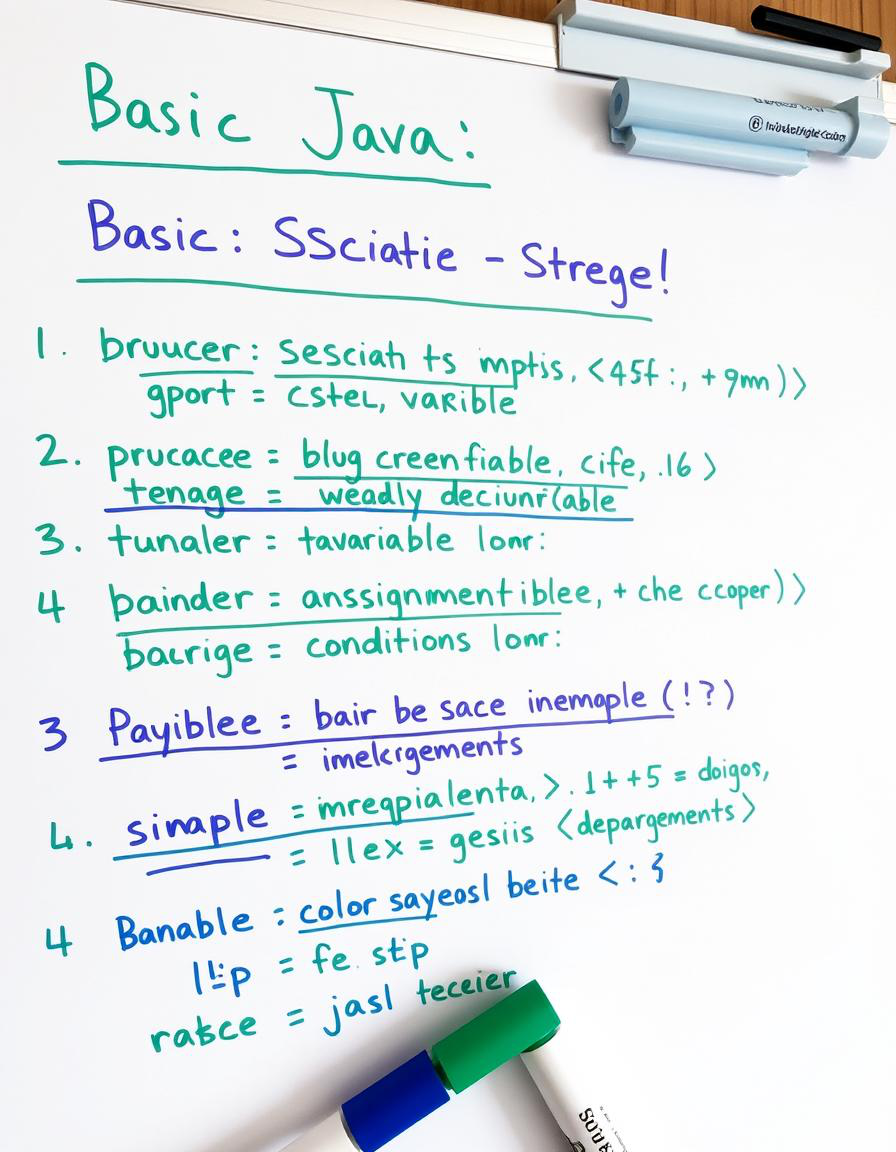 Basic Java:
Basic: SSciatie - Strege!
1. bruucer: sesciah ts mptis, <45f:, + 9mn)>
gport = cstel, varible
2. prucacee = blug creenfiable, cife, .16 >
tenage = weadly deciunr(able
3. tunaler = tavariable lonr:
4 bainder = anssignmentiblee, + che ccoper)>
bacrige = conditions lonr:
3 Payiblee = bair be sace inemaple (!?)
= imekrgements
4. sinaple = mreqpialenta, >. 1++5 = doigos,
= llex = gesiis <depargements>
4 Banable : color sayeosl beite <: }
= fe. stip
ratsce = jasl teceier